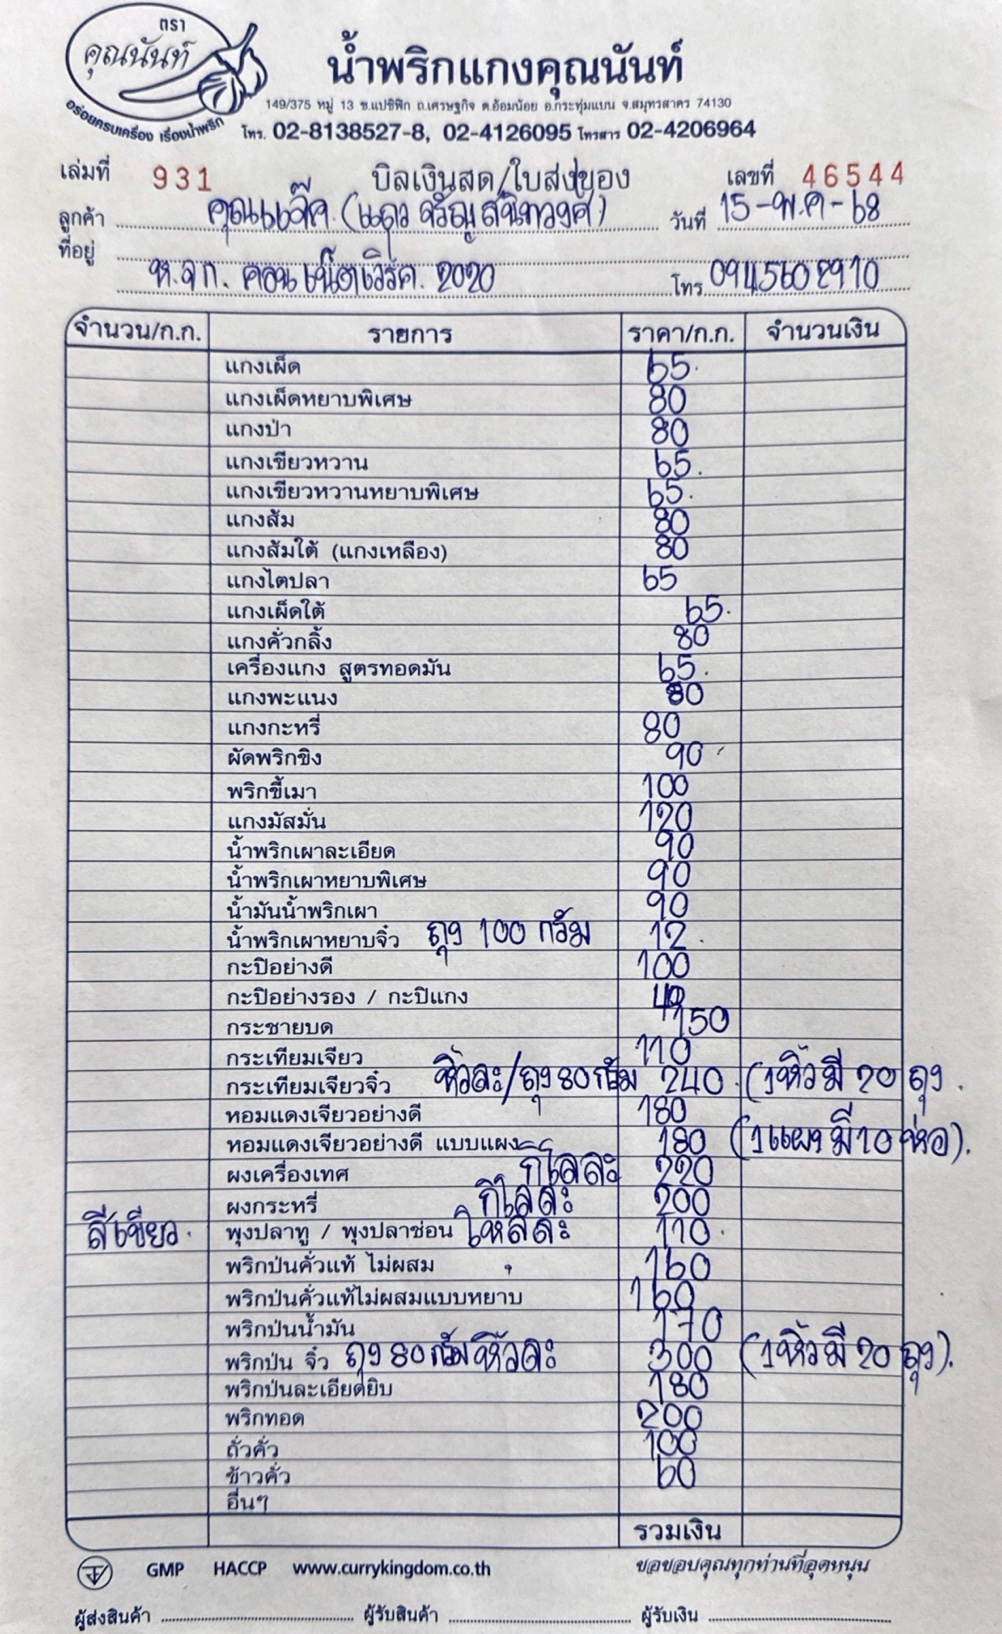 ตรา
คุณนันท์
อร่อยครบเครื่อง เรื่องน้ำพริก
น้ำพริกแกงคุณนันท์
149/375 หมู่ 13 ซ.แปซิฟิก ถ.เศรษฐกิจ ต.อ้อมน้อย อ.กระทุ่มแบน จ.สมุทรสาคร 74130
โทร. 02-8138527-8, 02-4126095 โทรสาร 02-4206964
เล่มที่ 931 บิลเงินสด/ใบส่งของ เลขที่ 46544
ลูกค้า คุณแจ๊ค (แถว จรัญสนิทวงศ์) วันที่ 15-พ.ค-68
ที่อยู่
ห.จ.ก. คอนเน็ตเวิร์ค. 2020 โทร 0945602910
จำนวน/ก.ก. รายการ ราคา/ก.ก. จำนวนเงิน
แกงเผ็ด 65.
แกงเผ็ดหยาบพิเศษ 80
แกงป่า 80
แกงเขียวหวาน 65.
แกงเขียวหวานหยาบพิเศษ 65.
แกงส้ม 80
แกงส้มใต้ (แกงเหลือง) 80
แกงไตปลา 65
แกงเผ็ดใต้ 65.
แกงคั่วกลิ้ง 80
เครื่องแกง สูตรทอดมัน 65.
แกงพะแนง 80
แกงกะหรี่ 80
ผัดพริกขิง 90
พริกขี้เมา 100
แกงมัสมั่น 120
น้ำพริกเผาละเอียด 90
น้ำพริกเผาหยาบพิเศษ 90
น้ำมันน้ำพริกเผา 90
น้ำพริกเผาหยาบจิ๋ว ถุง 100 กรัม 12.
กะปิอย่างดี 100
กะปิอย่างรอง / กะปิแกง
กระชายบด 150
กระเทียมเจียว 110
กระเทียมเจียวจิ๋ว หิ้วละ/ถุง 80 กรัม 240. (1หิ้วมี 20 ถุง.
หอมแดงเจียวอย่างดี 180
หอมแดงเจียวอย่างดี แบบแผง 180 (1แผงมี 10 ห่อ).
ผงเครื่องเทศ กิโลละ 220
ผงกระหรี่ กิโลละ 200
สีเขียว. พุงปลาทู / พุงปลาช่อน โหลละ 110.
พริกป่นคั่วแท้ ไม่ผสม 160
พริกป่นคั่วแท้ไม่ผสมแบบหยาบ 160
พริกป่นน้ำมัน 170
พริกป่น จิ๋ว ถุง 80 กรัม หิ้วละ 300 (1หิ้วมี 20 ถุง).
พริกป่นละเอียดยิบ 180
พริกทอด 200
ถั่วคั่ว 100
ข้าวคั่ว 60
อื่นๆ
รวมเงิน
GMP HACCP www.currykingdom.co.th ขอขอบคุณทุกท่านที่อุดหนุน
ผู้ส่งสินค้า ผู้รับสินค้า ผู้รับเงิน